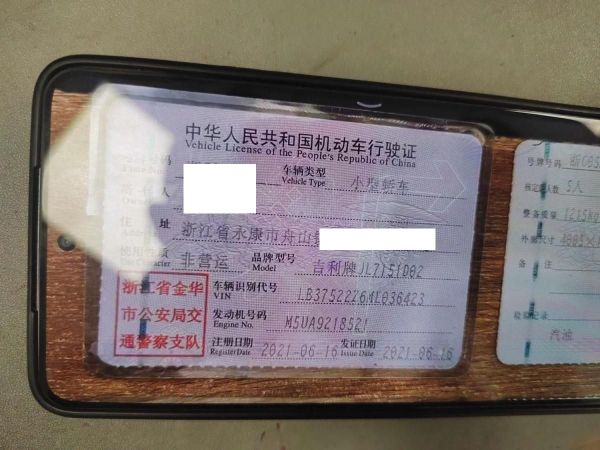 中华人民共和国机动车行驶证
Vehicle License of the People's Republic of China
车辆类型 小型轿车
Vehicle Type
住 址 浙江省永康市舟山镇
使用性质 非营运 品牌型号 吉利牌JL7151D02
Model
浙江省金华
市公安局交
通警察支队
车辆识别代号
VIN
发动机号码 M5UA9218521
Engine No.
注册日期 2021-06-16 发证日期 2021-06-16
Register Date Issue Date
号牌号码
核定载人数 5人
整备质量 1215kg
外廓尺寸
备 注
检验记录
汽油